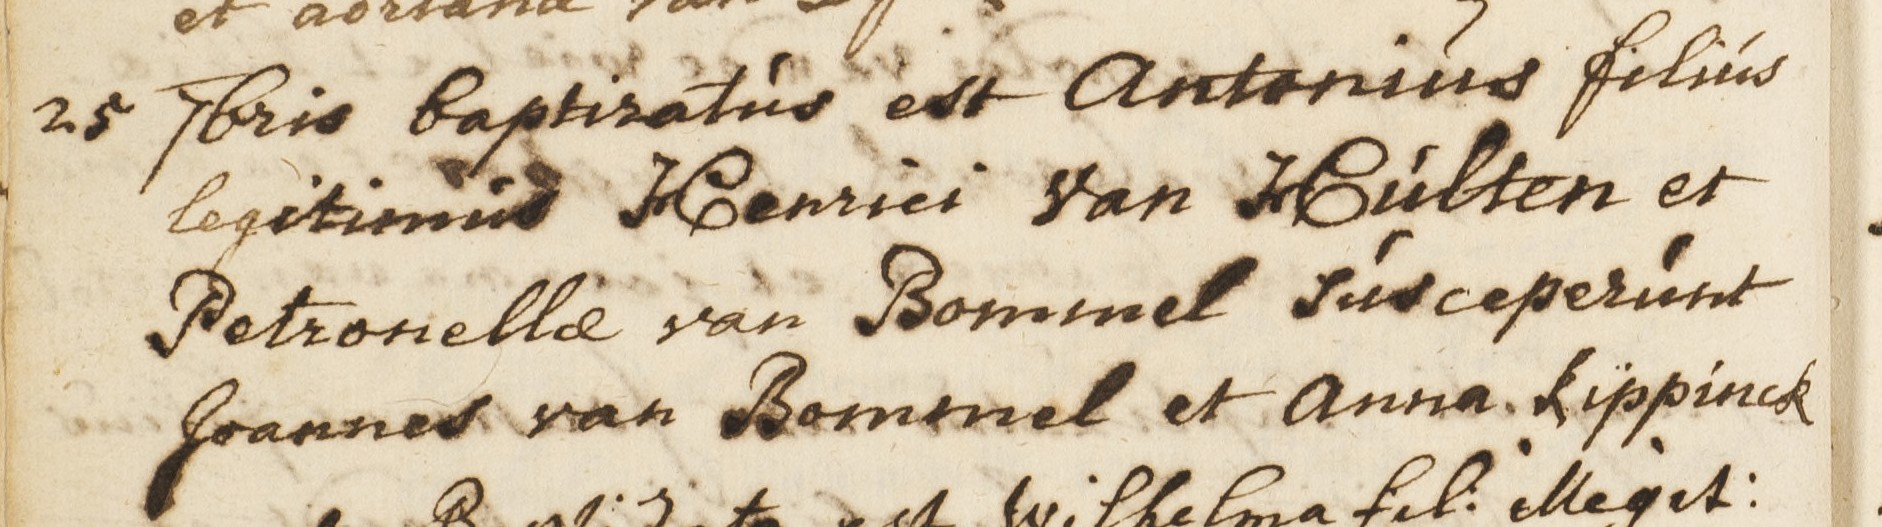 et adriana van
25 7bris baptizatús est Antoniús filiús
legitimús Henrici van Húlten et
Petronellæ van Bommel súsceperúnt
Joannes van Bommel et Anna kippinck
Baptizata est Wilhelma fil: illegit: